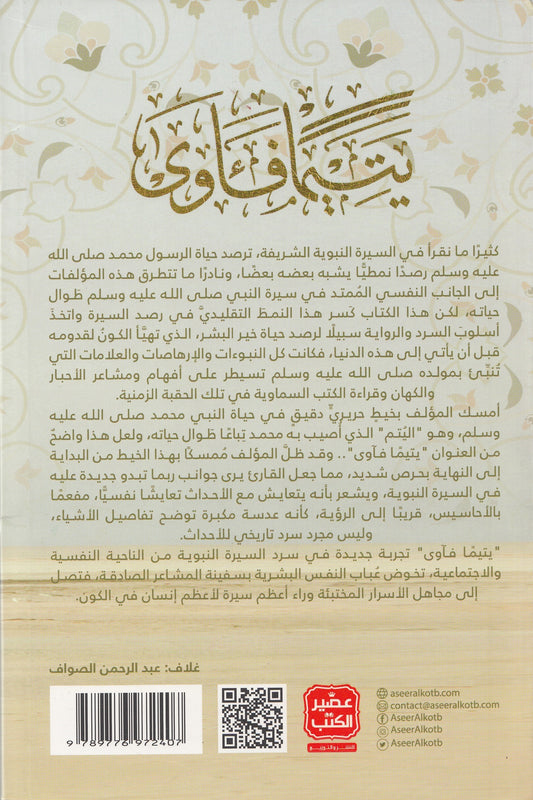 يَتِيمًا فَـَٔاوَىٰ
كثيرًا ما نقرأ في السيرة النبوية الشريفة، ترصد حياة الرسول محمد صلى الله
عليه وسلم رصدًا نمطيًّا يشبه بعضه بعضًا، ونادرًا ما تتطرق هذه المؤلفات
إلى الجانب النفسي المُمتد في سيرة النبي صلى الله عليه وسلم طَوال
حياته، لكن هذا الكتاب كَسر هذا النمطَ التقليديَّ في رصد السيرة واتخذَ
أسلوبَ السرد والرواية سبيلًا لرصد حياة خير البشر، الذي تهيَّأ الكونُ لقدومه
قبل أن يأتي إلى هذه الدنيا، فكانت كل النبوءات والإرهاصات والعلامات التي
تُنبِّئ بمولده صلى الله عليه وسلم تسيطر على أفهام ومشاعر الأحبار
والكهان وقراءة الكتب السماوية في تلك الحقبة الزمنية.
أمسك المؤلف بخيطٍ حريريٍّ دقيقٍ في حياة النبي محمد صلى الله عليه
وسلم، وهو "اليُتم" الذي أصيب به محمد تِباعًا طَوال حياته، ولعل هذا واضحٌ
من العنوان "يتيمًا فآوى".. وقد ظلَّ المؤلف مُمسكًا بهذا الخيط من البداية
إلى النهاية بحرص شديد، مما جعل القارئ يرى جوانب ربما تبدو جديدة عليه
في السيرة النبوية، ويشعر بأنه يتعايش مع الأحداث تعايشًا نفسيًّا، مفعمًا
بالأحاسيس، قريبًا إلى الرؤية، كأنه عدسة مكبرة توضح تفاصيل الأشياء،
وليس مجرد سرد تاريخي للأحداث.
"يتيمًا فآوى" تجربة جديدة في سرد السيرة النبوية من الناحية النفسية
والاجتماعية، تخوض عُباب النفس البشرية بسفينة المشاعر الصادقة، فتصل
إلى مجاهل الأسرار المختبئة وراء أعظم سيرة لأعظم إنسان في الكون.
غلاف: عبد الرحمن الصواف
9 789776 972407
عصير
الكتب
للنشر والتوزيع
aseeralkotb.com
contact@aseeralkotb.com
AseerAlkotb
AseerAlkotb
AseerAlkotb